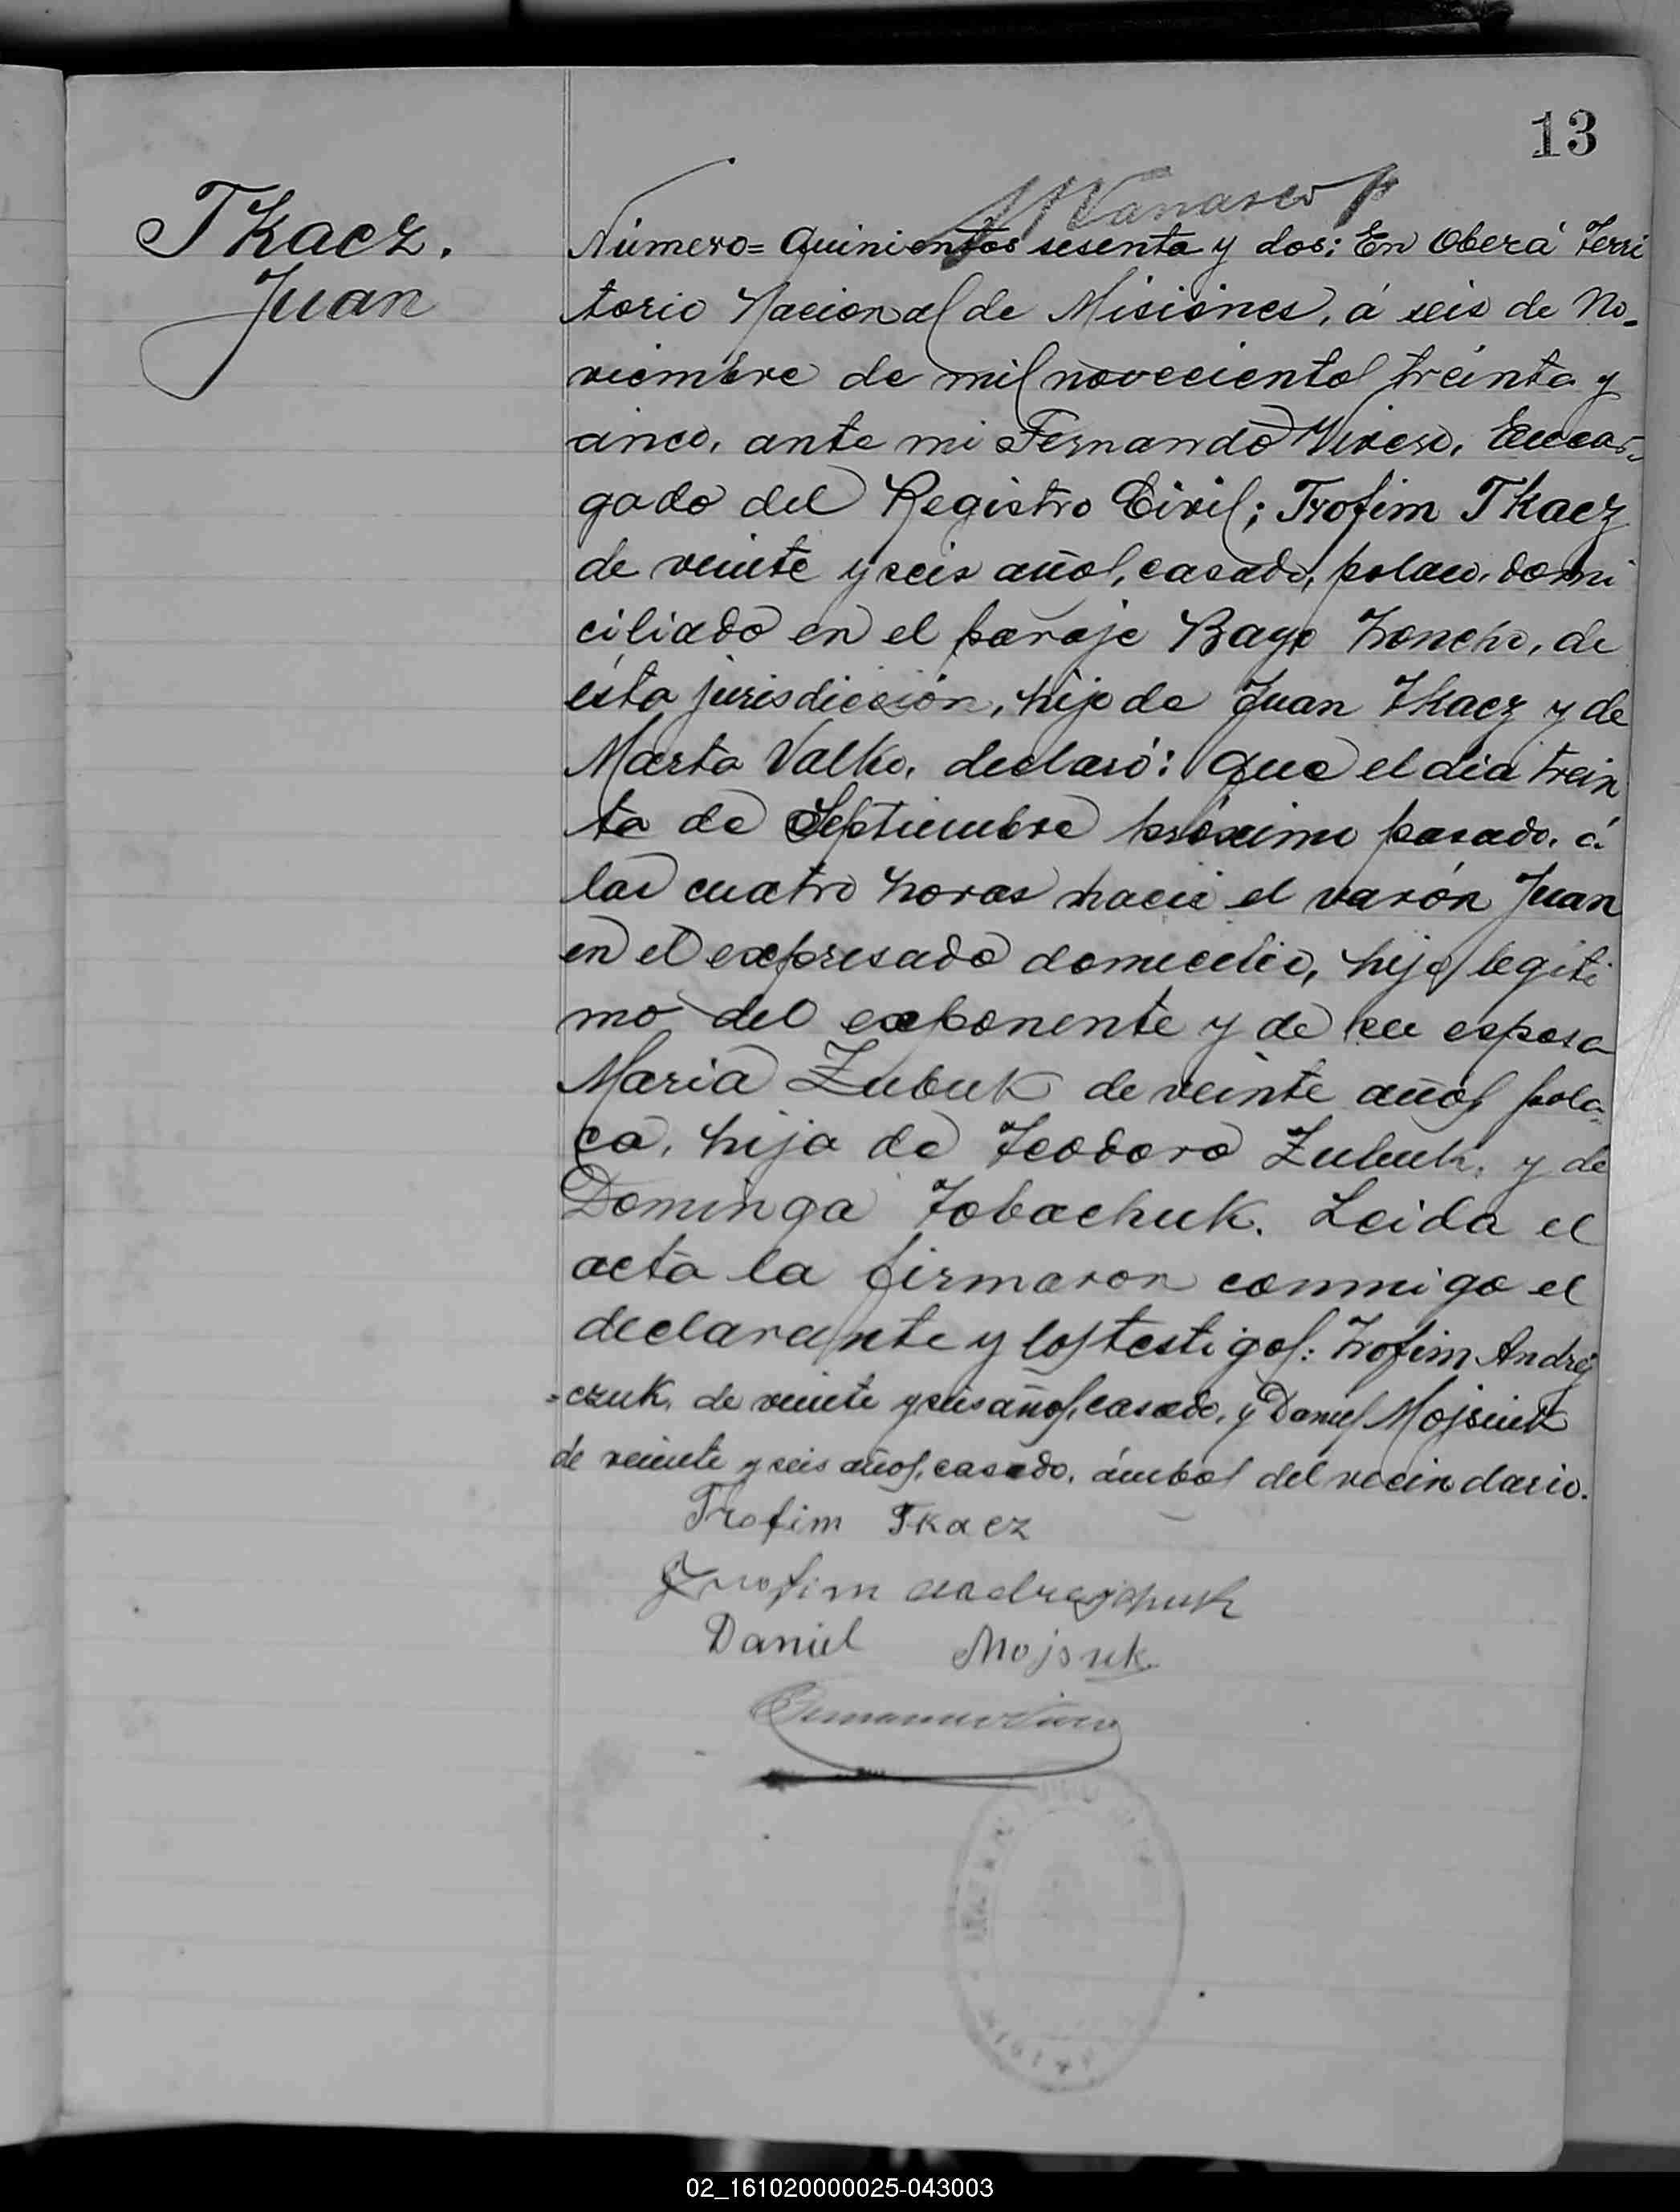 13
Tkacz.
Juan
Número= Quinientos sesenta y dos: En Oberá Terri
torio Nacional de Misiones, á seis de No-
viembre de mil novecientos treinta y
cinco, ante mi Fernando Vivero, Encar-
gado del Registro Civil; Trofim Tkacz
de veinte y seis años, casado, polaco, domi
ciliado en el paraje Bayo Troncho, de
ésta jurisdicción, hijo de Juan Tkacz y de
Marta Valko, declaró: Que el dia trein
ta de Septiembre próximo pasado, á
las cuatro horas nacié el varón Juan
en el expresado domicilio, hijo legiti
mo del exponente y de su esposa
Maria Zubuk de veinte años, pola-
ca, hija de Teodoro Zubuk, y de
Dominga Tobachuk. Leida el
acta la firmaron conmigo el
declarante y los testigos: Trofim Andrej
=czuk, de veinte y seis años, casado, y Daniel Mojsiuk
de veinte y seis años, casado, ámbos del vecindario.
Trofim Tkacz
Trofim Andrejczuk
Daniel Mojsuk
02_161020000025-043003